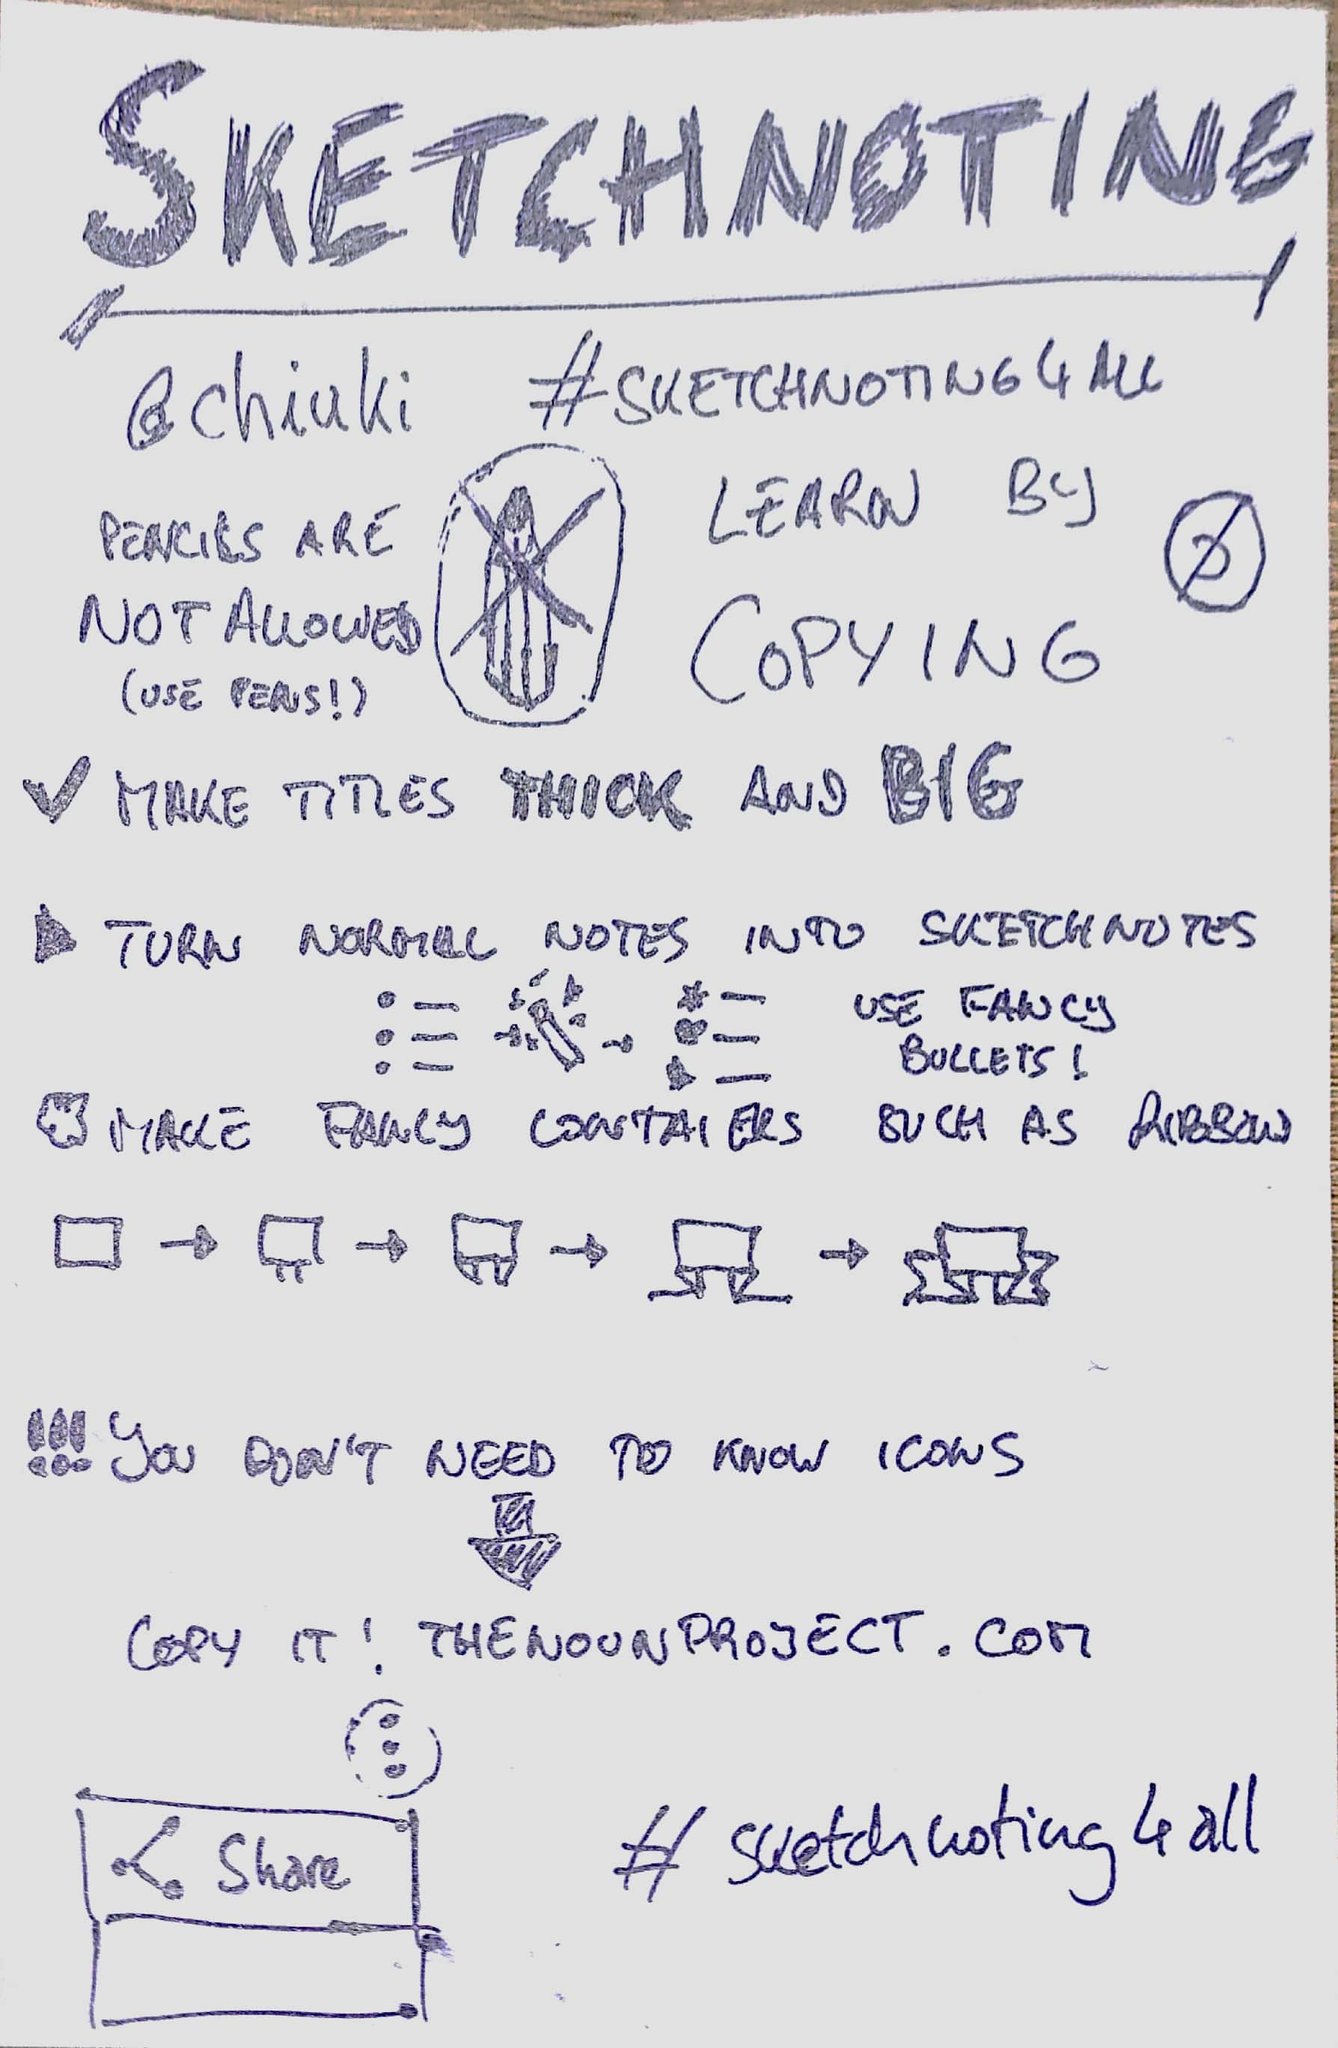 SKETCHNOTING
@chiuki #SKETCHNOTING4ALL
PENCILS ARE
NOT ALLOWED
(USE PENS!)
LEARN BY
COPYING
MAKE TITLES THICK AND BIG
TURN NORMAL NOTES INTO SKETCHNOTES
USE FANCY
BULLETS!
MAKE FANCY CONTAIERS SUCH AS RIBBON
!!! YOU DON'T NEED TO KNOW ICONS
COPY IT! THENOUNPROJECT.COM
Share
#sketchnoting4all